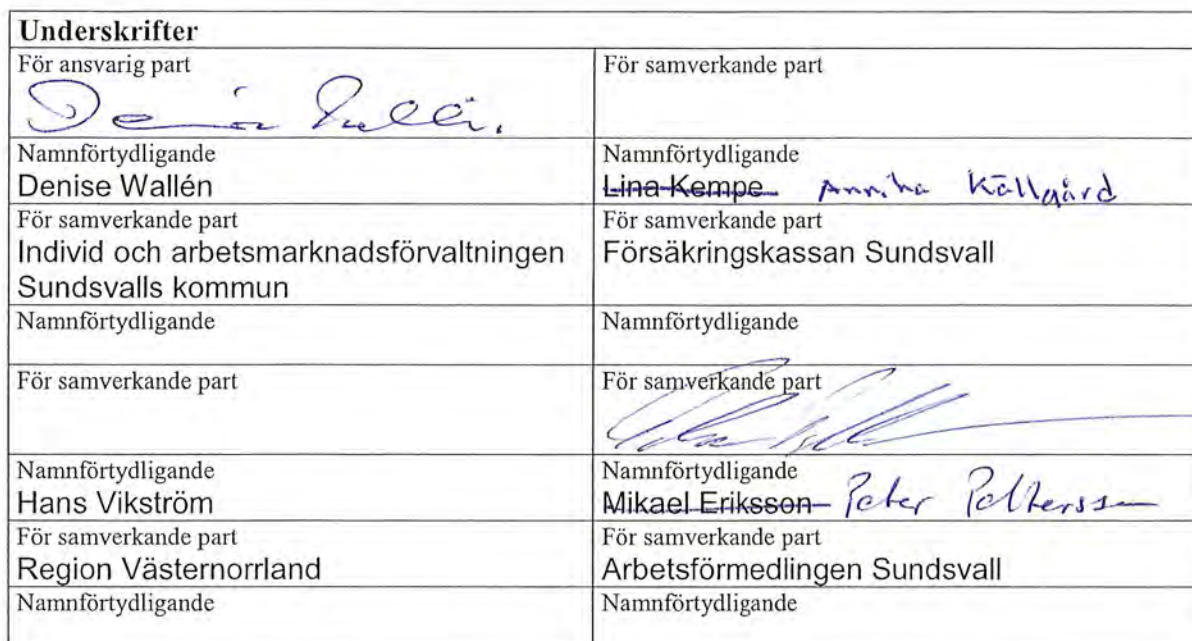 Underskrifter
För ansvarig part
För samverkande part
Denise Wallén.
Namnförtydligande
Denise Wallén
Namnförtydligande
Lina Kempe Annika Källgård
För samverkande part
Individ och arbetsmarknadsförvaltningen
Sundsvalls kommun
För samverkande part
Försäkringskassan Sundsvall
Namnförtydligande
Namnförtydligande
För samverkande part
För samverkande part
Namnförtydligande
Hans Vikström
Namnförtydligande
Mikael Eriksson Peter Pettersson
För samverkande part
Region Västernorrland
För samverkande part
Arbetsförmedlingen Sundsvall
Namnförtydligande
Namnförtydligande